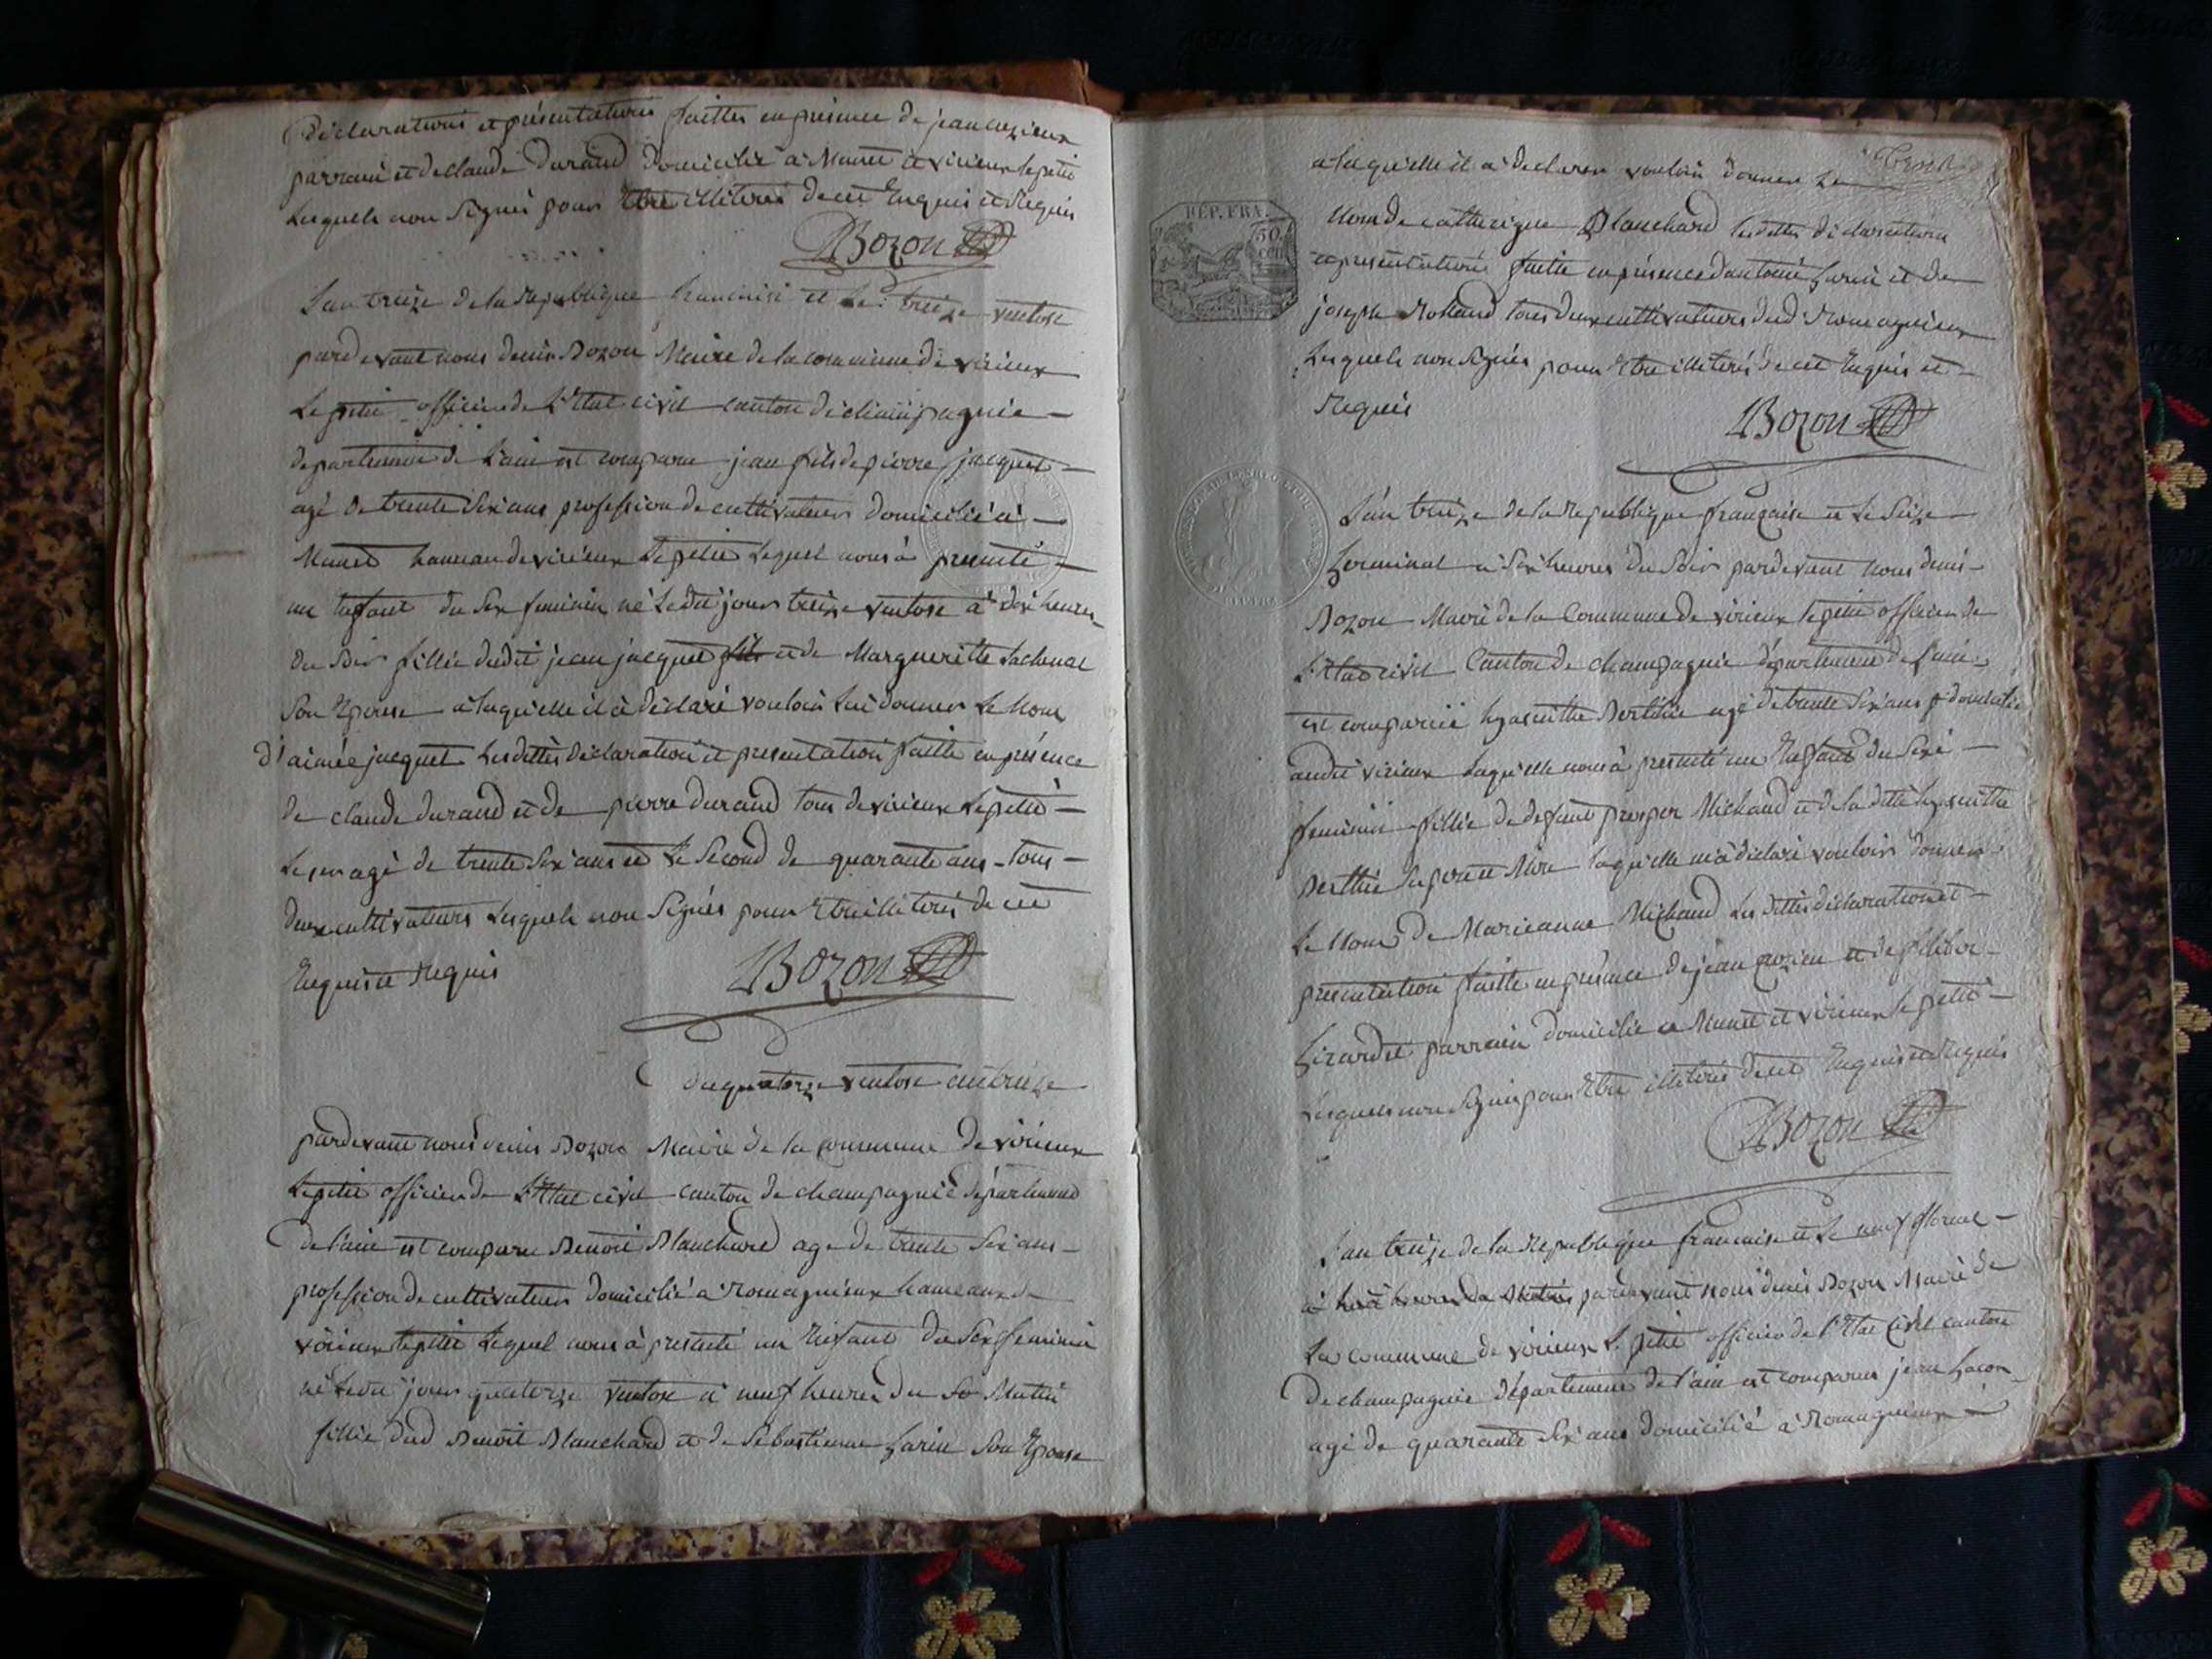 Déclarations et présentations faittes en présence de jean cuzieux
parrain et de Claude Durand domicilié a Munet et virieux le petit
Lesquels non Signés pour Etre illiterés de ce Enquis et Requis
DBozon
L'an treize de la Republique francaise et le treize ventose
pardevant nous denis Bozon Maire de la commune de virieux
Le petit officier de L'Etat civil canton de champagnie
departement de L'ain est comparu jean fils de pierre jacquet
agé de trente Six ans profession de cultivateur domicilié à
Munet hameau de virieux Le petit Lequel nous à presenté
un Enfant du Sex feminin né Ledit jour treize ventose a dix heures
du Soir fillie dudit jean jacquet fils et de Margueritte Lachenal
Son Epouse a laquelle il à déclaré vouloir Lui donner Le Nom
d'aimée jacquet Lesdittes déclaration et presentation faitte en présence
de claude durand et de pierre durand tous de virieux Le petit
Le per agé de trente Six ans et Le Second de quarante ans tous
deux cultivateurs Lesquels non Signés pour Etre illiterés de ce
Enquis et Requis
DBozon
du quatorze ventose an treize
pardevant nous denis Bozon Maire de la commune de virieux
Le petit officier de L'Etat civil canton de champagnie département
de l'ain est comparu Benoit Blanchard age de trente Six ans
profession de cultivateur domicilié a Romagnieux hameau de
virieux Le petit Lequel nous à presenté un Enfant du Sex feminin
né Ledit jour quatorze ventose à neuf heures du So Matin
fillie dud Benoit Blanchard et de Sebastienne farin Son Epouse
a laquelle il a declarer vouloir donner Le
Nom de catherigne Blanchard Lesdittes déclaration
REP. FRA.
50
cen
et presentation faitte en présence d'antoine farin et de
joseph Rolland tous deux cultivateurs dud Romagnieux
Lesquels non Signés pour Etre illiterés de ce Enquis et
Requis
DBozon
L'an treize de la Republique française et Le Seize
germinal à Six heures du Soir pardevant nous denis
Bozon Maire de la Commune de virieux Le petit officier de
L'Etat civil Canton de champagnie département de L'ain
est comparüe hyacinthe Berthie agé de trente Six ans domicilié
audit virieux Laquelle nous à presenté un Enfant du Sexe
feminin fillie de defunt prosper Michaud et de la ditte hyacinthe
Berthie Ses pere et Mere laquelle m'à déclaré vouloir donner
Le Nom de Marieanne Michaud Les dittes déclaration et
presentation faitte en présence de jean cuzieu et de filiber
girardet parrain domicilié a Munet et virieux Le petit
Lesquels non Signés pour Etre illiterés de ce Enquis et Requis
DBozon
L'an treize de la Republique francaise et Le neuf floreal
à huit heures du Matin pardevant nous denis Bozon Maire de
La commune de virieux Le petit officier de L'Etat Civil canton
de champagnie département de l'ain est comparus jean
agé de quarante Six ans domicilié à Romagnieux